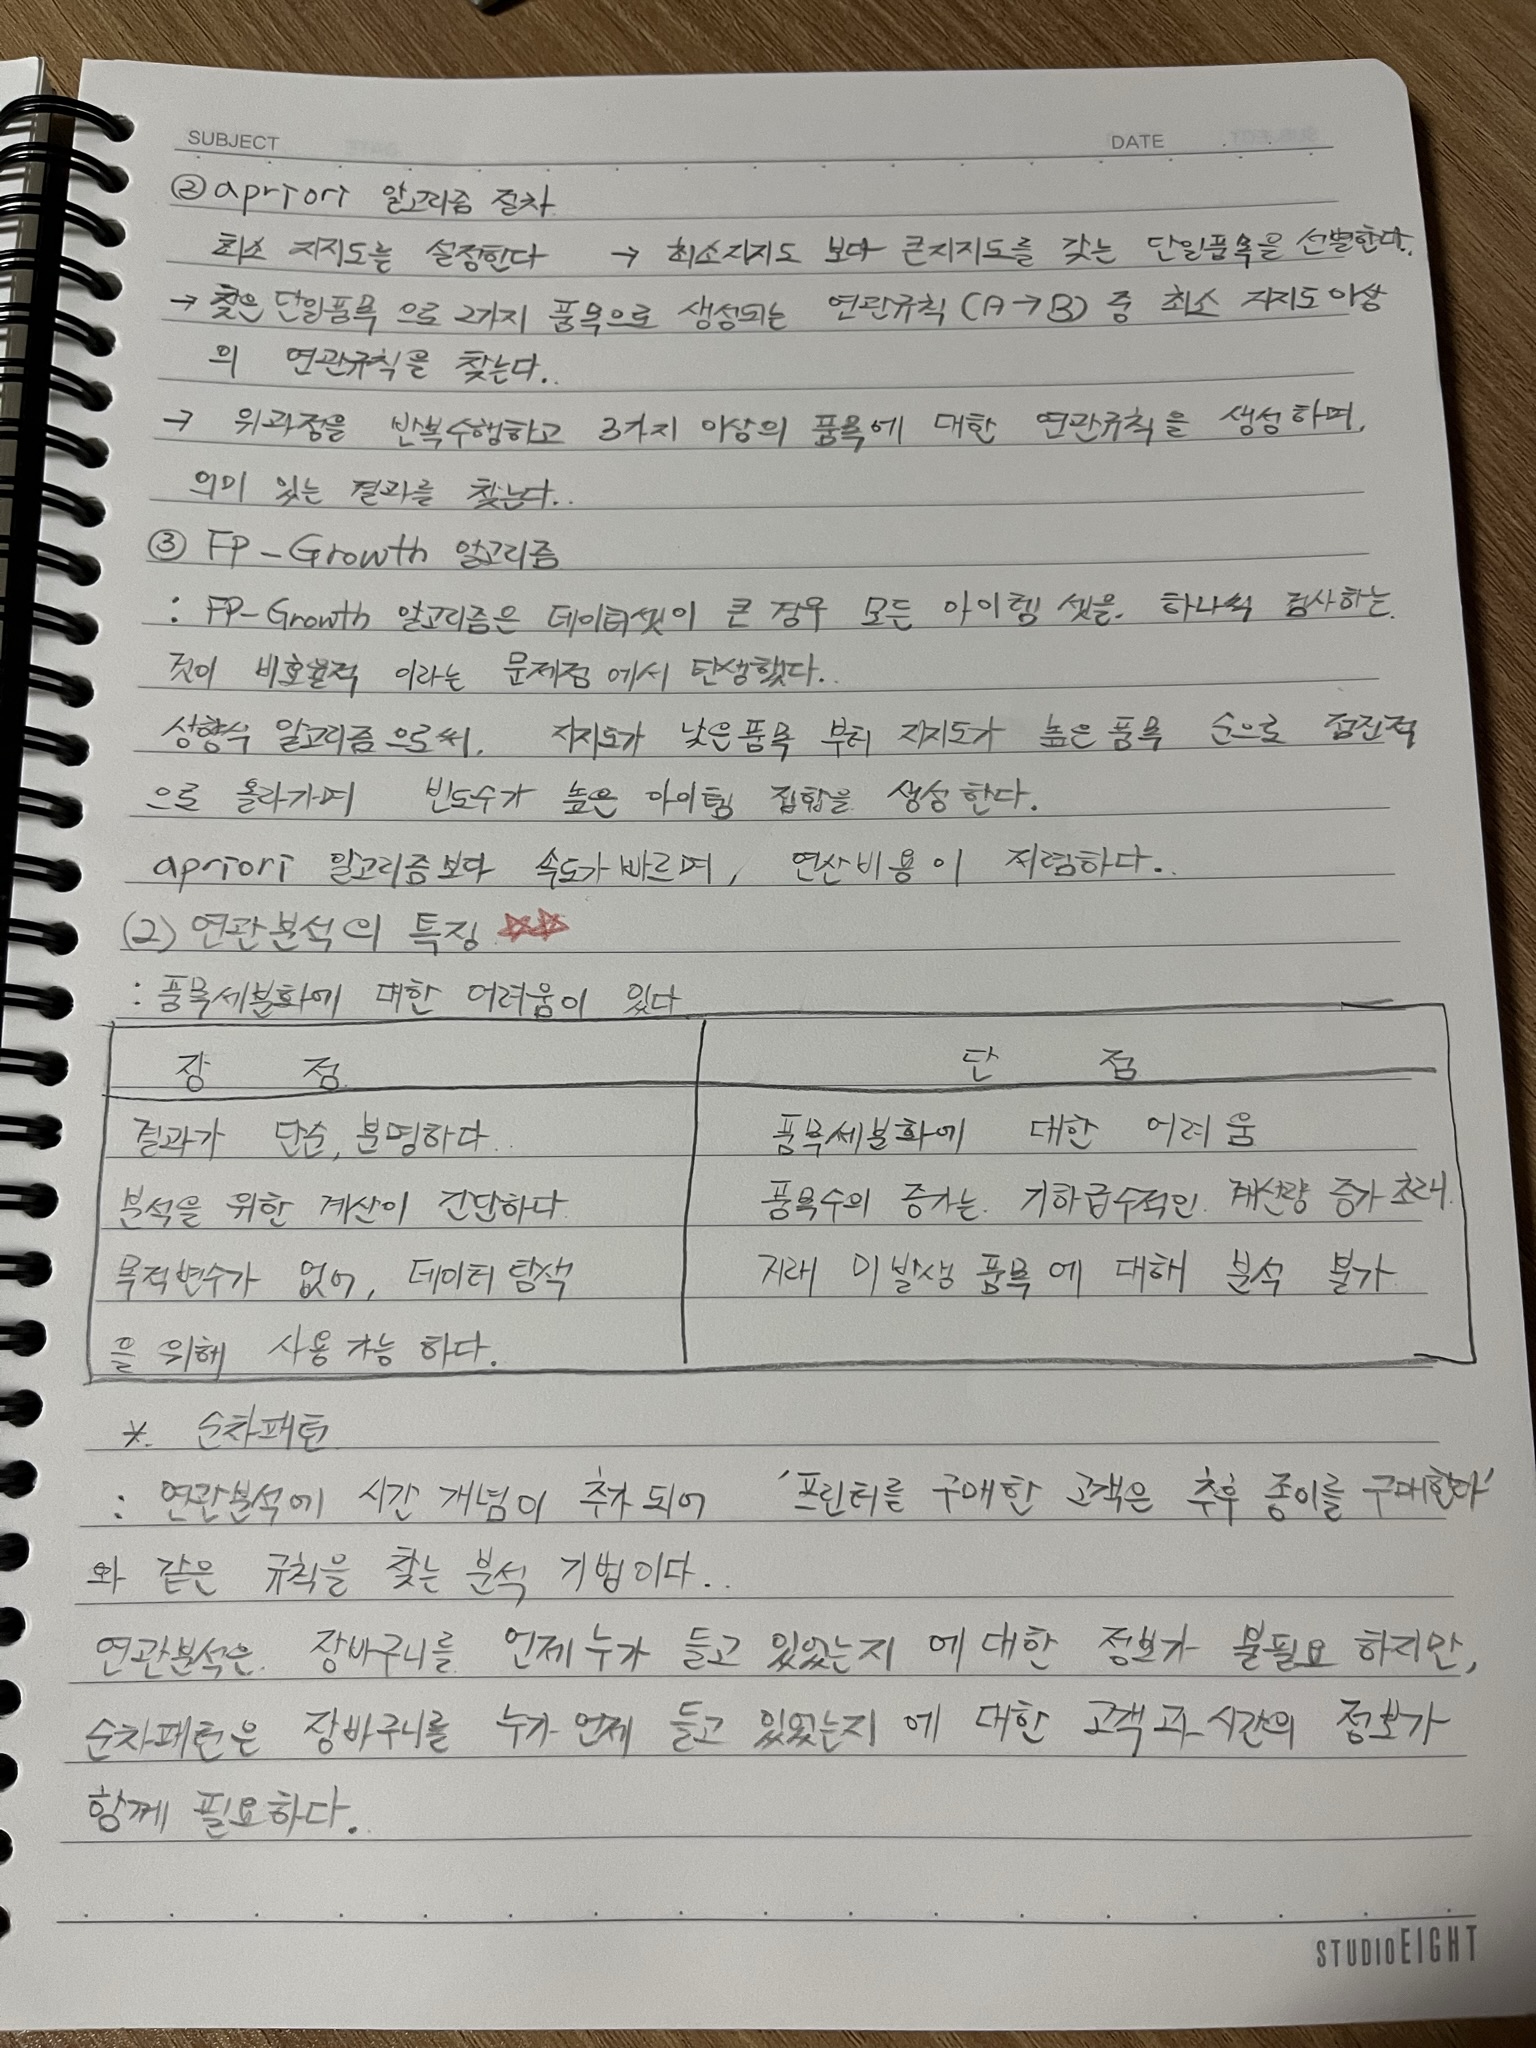 SUBJECT
DATE
② apriori 알고리즘 절차
최소 지지도를 설정한다 → 최소지지도 보다 큰지지도를 갖는 단일품목을 선별한다.
→ 찾은 단일품목 으로 2가지 품목으로 생성되는 연관규칙 (A→B) 중 최소 지지도 이상
의 연관규칙을 찾는다..
→ 위과정을 반복수행하고 3가지 이상의 품목에 대한 연관규칙을 생성하며,
의미 있는 결과를 찾는다..
③ FP-Growth 알고리즘
: FP-Growth 알고리즘은 데이터셋이 큰 경우 모든 아이템 셋을. 하나씩 검사하는
것이 비효율적 이라는 문제점 에서 탄생했다..
상향식 알고리즘으로써, 지지도가 낮은품목 부터 지지도가 높은품목 순으로 점진적
으로 올라가며 빈도수가 높은 아이템 집합을 생성 한다.
apriori 알고리즘보다 속도가 빠르며, 연산비용이 저렴하다..
(2) 연관분석의 특징 ☆☆
: 품목세분화에 대한 어려움이 있다
장 점
단 점
결과가 단순, 분명하다..
품목세분화에 대한 어려움
분석을 위한 계산이 간단하다
품목수의 증가는. 기하급수적인. 계산량 증가 초래.
목적변수가 없어, 데이터 탐색
거래 미발생 품목에 대해 분석 불가
을 위해 사용가능 하다.
*. 순차패턴
: 연관분석에 시간 개념이 추가 되어 '프린터를 구매한 고객은 추후 종이를 구매한다'
와 같은 규칙을 찾는 분석 기법이다..
연관분석은. 장바구니를 언제 누가 들고 있었는지 에 대한 정보가 불필요 하지만,
순차패턴은 장바구니를 누가 언제 들고 있었는지 에 대한 고객과 시간의 정보가
함께 필요하다.
STUDIO EIGHT